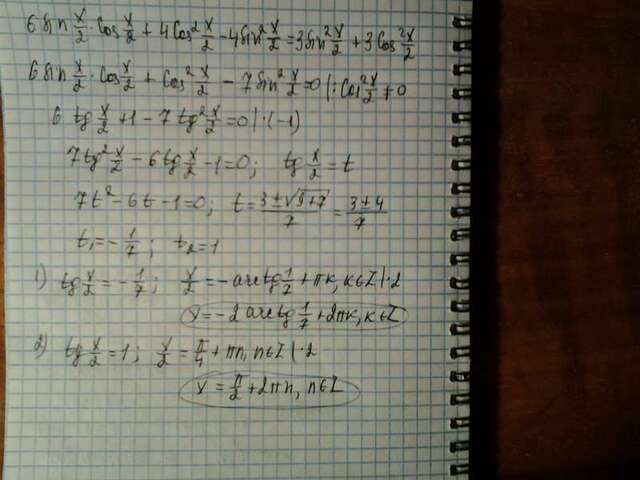 6 sin x/2 · cos x/2 + 4cos² x/2 - 4sin² x/2 = 3sin² x/2 + 3cos² x/2
6 sin x/2 · cos x/2 + cos² x/2 - 7sin² x/2 = 0 |: cos² x/2 ≠ 0
6 tg x/2 + 1 - 7tg² x/2 = 0 | · (-1)
7tg² x/2 - 6tg x/2 - 1 = 0; tg x/2 = t
7t² - 6t - 1 = 0; t = (3 ± √(9+7))/7 = (3 ± 4)/7
t₁ = -1/7; t₂ = 1
1) tg x/2 = -1/7; x/2 = -arctg 1/7 + πk, k∈Z | · 2
x = -2 arctg 1/7 + 2πk, k∈Z
2) tg x/2 = 1; x/2 = π/4 + πn, n∈Z | · 2
x = π/2 + 2πn, n∈Z